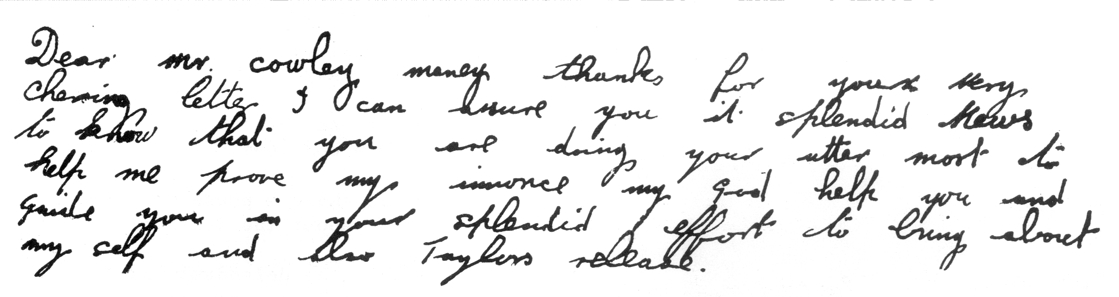 Dear mr. cowley money thanks for yours very
chering letter I can assure you it splendid News
to know that you are doing your utter most to
help me prove my innonce my God help you and
guide you in your splendid effort to bring about
my self and also Taylors release.